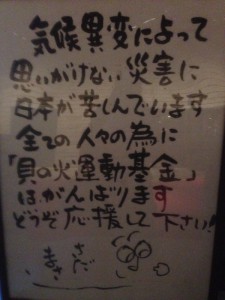 気候異変によって
思いがけない災害に
日本が苦しんでいます
全ての人々の為に
「貝の火運動基金」
はがんばります
どうぞ応援して下さい!
さだ
まさし